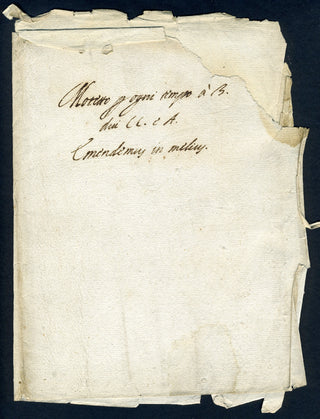 Motteto p ogni tempo à 3.
due CC. e A.
Emendemus in melius.